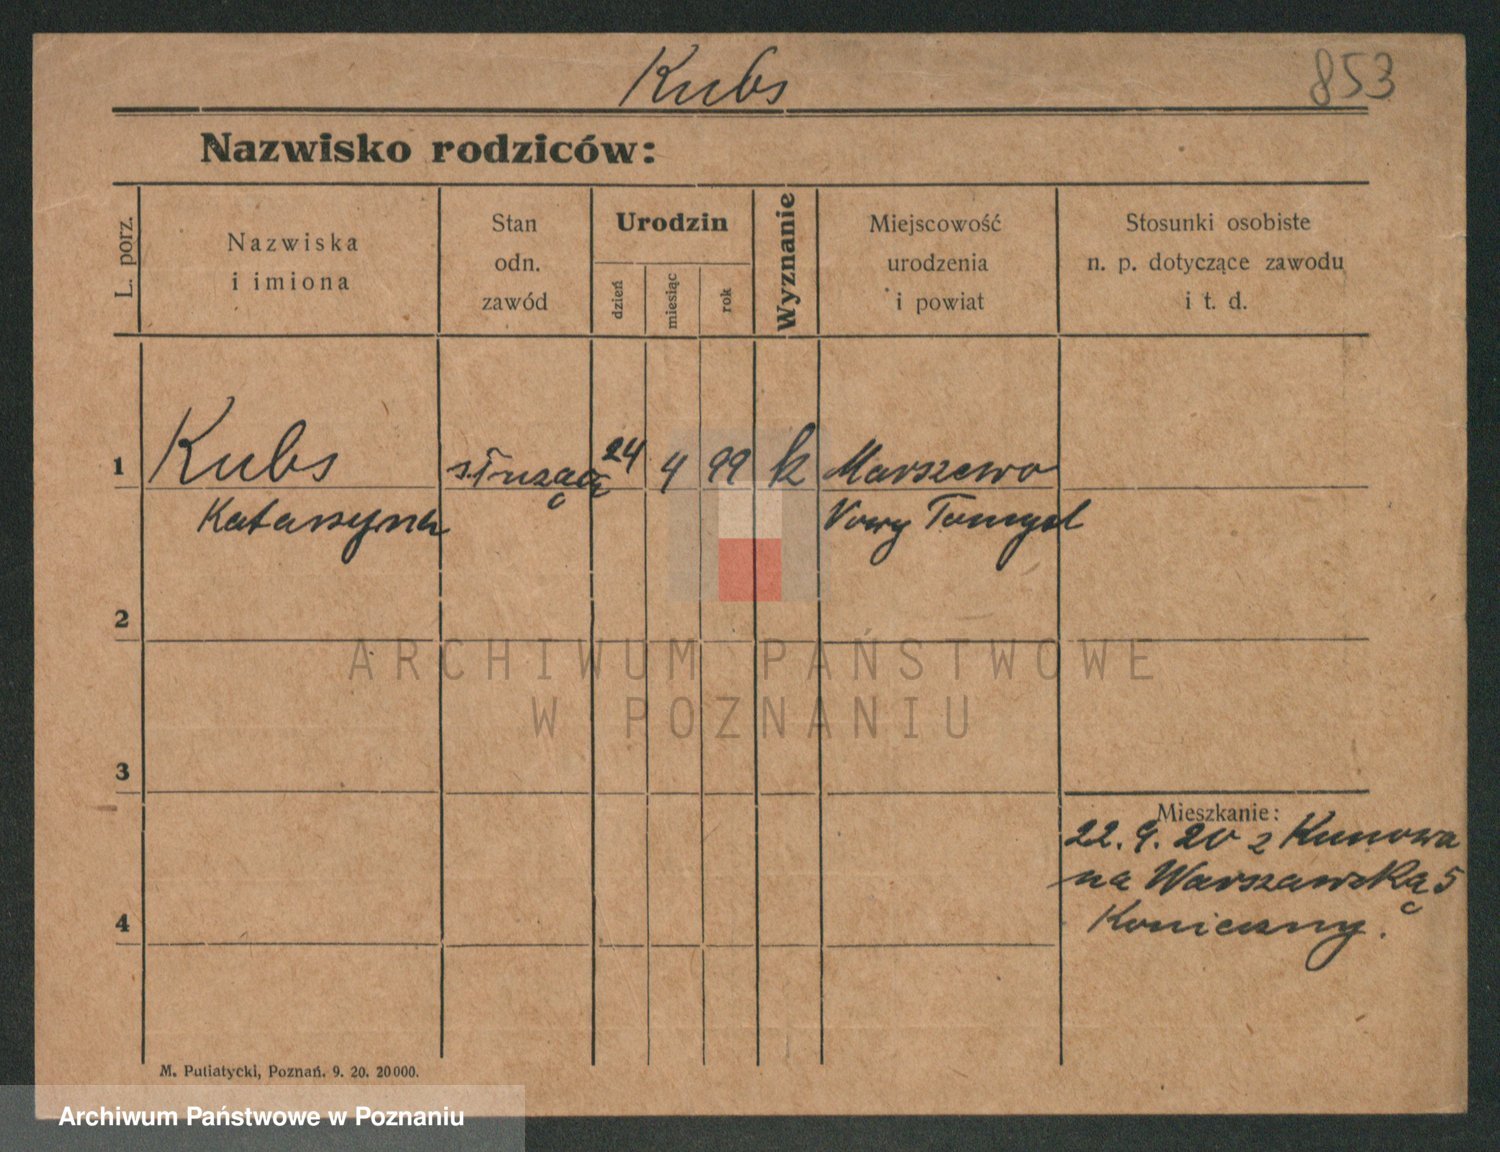 Kubs
853
Nazwisko rodziców:
L. porz.
Nazwiska
i imiona
Stan
odn.
zawód
Urodzin
dzień
miesiąc
rok
Wyznanie
Miejscowość
urodzenia
i powiat
Stosunki osobiste
n. p. dotyczące zawodu
i t. d.
1 Kubs służąca 24 4 99 k Marszewo
Katarzyna Nowy Tomysl
2
ARCHIWUM PAŃSTWOWE
W POZNANIU
3
Mieszkanie:
22. 9. 20 z Kunowa
na Warszawską 5
4 Konieczny.
M. Putiatycki, Poznań. 9. 20. 20000.
Archiwum Państwowe w Poznaniu